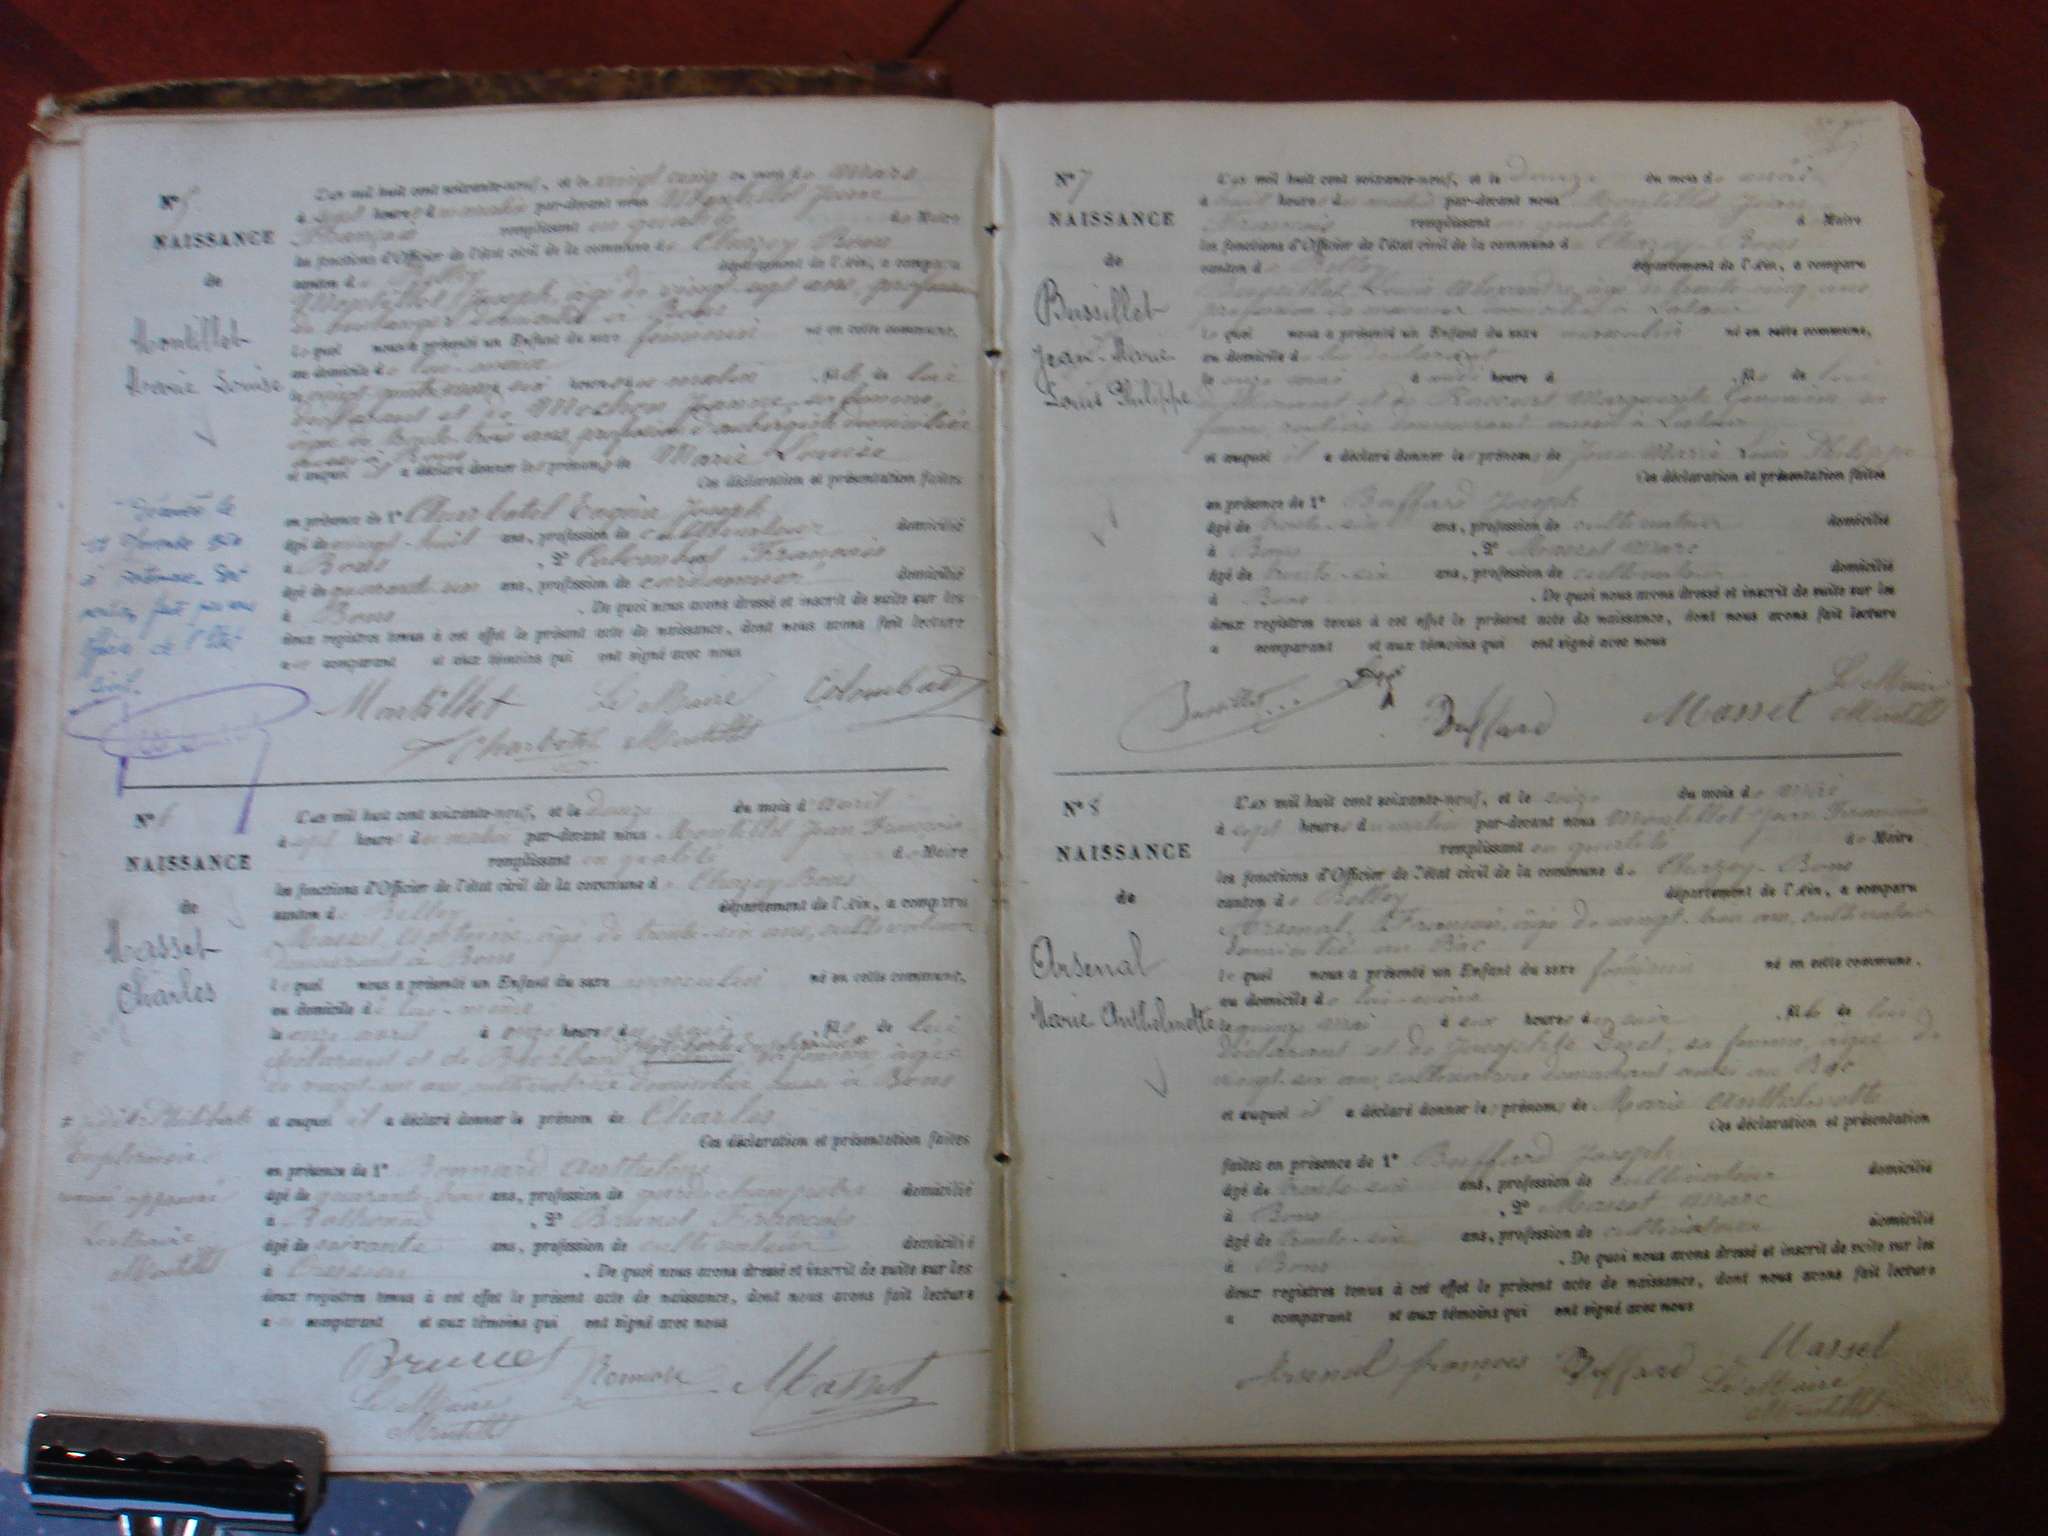 N° 5
NAISSANCE
de
Montillet
Marie Louise
L'an mil huit cent soixante-neuf, et le vingt cinq du mois de mars
à sept heures du matin par-devant nous Montillet Jean
François remplissant en qualité de Maire
les fonctions d'Officier de l'état civil de la commune de Chazey Bons
canton de Belley département de l'Ain, a comparu
Montillet Joseph, âgé de vingt-sept ans, profession
de boulanger domicilié à Bons
lequel nous a présenté un Enfant du sexe féminin né en cette commune,
au domicile de lui-même
le vingt quatre mars six heures du matin fille de lui
déclarant et de Jeanne sa femme,
âgée de trente trois ans, profession d'aubergiste domiciliée
aussi à Bons
et auquel il a déclaré donner les prénoms de Marie Louise
Ces déclaration et présentation faites
en présence de 1° Charbotel Eugène Joseph
âgé de vingt-huit ans, profession de cultivateur domicilié
à Bons , 2° Colombat François
âgé de quarante-un ans, profession de cordonnier domicilié
à Bons . De quoi nous avons dressé et inscrit de suite sur les
deux registres tenus à cet effet le présent acte de naissance, dont nous avons fait lecture
au comparant et aux témoins qui ont signé avec nous
Décédée le
à
mention fait par nous
officier de l'état
civil.
Montillet Le Maire Colombat
Charbotel Montillet
N° 6
NAISSANCE
de
Masset
Charles
L'an mil huit cent soixante-neuf, et le douze du mois d'avril
à sept heures du matin par-devant nous Montillet Jean François
remplissant en qualité de Maire
les fonctions d'Officier de l'état civil de la commune de Chazey Bons
canton de Belley département de l'Ain, a comparu
Masset Antoine, âgé de trente-six ans, cultivateur
demeurant à Bons
lequel nous a présenté un Enfant du sexe masculin né en cette commune,
au domicile de lui-même
le onze avril à onze heures du soir fils de lui
déclarant et de sa femme, âgée
de vingt-un ans, cultivatrice domiciliée aussi à Bons
et auquel il a déclaré donner le prénom de Charles
Ces déclaration et présentation faites
en présence de 1° Bonnard Anthelme
âgé de quarante-trois ans, profession de garde champêtre domicilié
à Rothonod , 2° Brunet François
âgé de soixante ans, profession de cultivateur domicilié
à Cressieu . De quoi nous avons dressé et inscrit de suite sur les
deux registres tenus à cet effet le présent acte de naissance, dont nous avons fait lecture
au comparant et aux témoins qui ont signé avec nous
Philiberte
Euphrosie
Le Maire
Montillet
Brunet Bonnard Masset
Le Maire
Montillet
N° 7
NAISSANCE
de
Bussillet
Jean-Marie
Louis Philippe
L'an mil huit cent soixante-neuf, et le douze du mois de mai
à huit heures du matin par-devant nous Montillet Jean
François remplissant en qualité de Maire
les fonctions d'Officier de l'état civil de la commune de Chazey-Bons
canton de Belley département de l'Ain, a comparu
Bussillet Louis Alexandre, âgé de trente-cinq ans
profession de domicilié à
lequel nous a présenté un Enfant du sexe masculin né en cette commune,
au domicile de lui déclarant
le onze mai à midi heure fils de lui
déclarant et de Marguerite sa
femme, demeurant aussi à
et auquel il a déclaré donner les prénoms de Jean Marie Louis Philippe
Ces déclaration et présentation faites
en présence de 1° Buffard Joseph
âgé de trente-six ans, profession de cultivateur domicilié
à Bons , 2° Masset Marc
âgé de trente-six ans, profession de cultivateur domicilié
à Bons . De quoi nous avons dressé et inscrit de suite sur les
deux registres tenus à cet effet le présent acte de naissance, dont nous avons fait lecture
a comparant et aux témoins qui ont signé avec nous
Bussillet Buffard Masset Le Maire
Montillet
N° 8
NAISSANCE
de
Arsenal
Marie Anthelmette
L'an mil huit cent soixante-neuf, et le seize du mois de mai
à sept heures du matin par-devant nous Montillet Jean François
remplissant en qualité de Maire
les fonctions d'Officier de l'état civil de la commune de Chazey-Bons
canton de Belley département de l'Ain, a comparu
Arsenal François, âgé de vingt-trois ans, cultivateur
domicilié au Bac
lequel nous a présenté un Enfant du sexe féminin né en cette commune.
au domicile de lui-même
le quinze mai à six heures du soir fille de lui
déclarant et de Josephte sa femme, âgée de
vingt-six ans, cultivatrice demeurant aussi au Bac
et auquel il a déclaré donner les prénoms de Marie Anthelmette
Ces déclaration et présentation
faites en présence de 1° Buffard Joseph
âgé de trente-six ans, profession de cultivateur domicilié
à Bons , 2° Masset Marc
âgé de trente-six ans, profession de cultivateur domicilié
à Bons . De quoi nous avons dressé et inscrit de suite sur les
deux registres tenus à cet effet le présent acte de naissance, dont nous avons fait lecture
a comparant et aux témoins qui ont signé avec nous
Arsenal françois Buffard Masset
Le Maire
Montillet